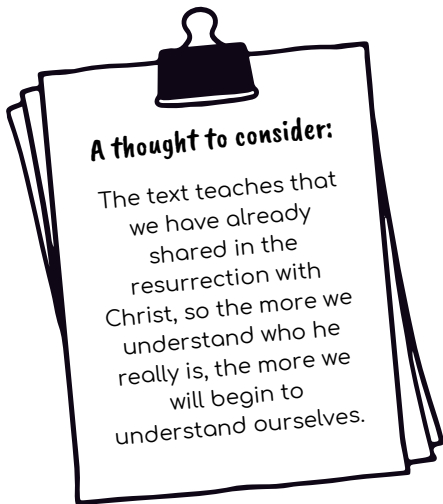 A thought to consider:
The text teaches that
we have already
shared in the
resurrection with
Christ, so the more we
understand who he
really is, the more we
will begin to
understand ourselves.